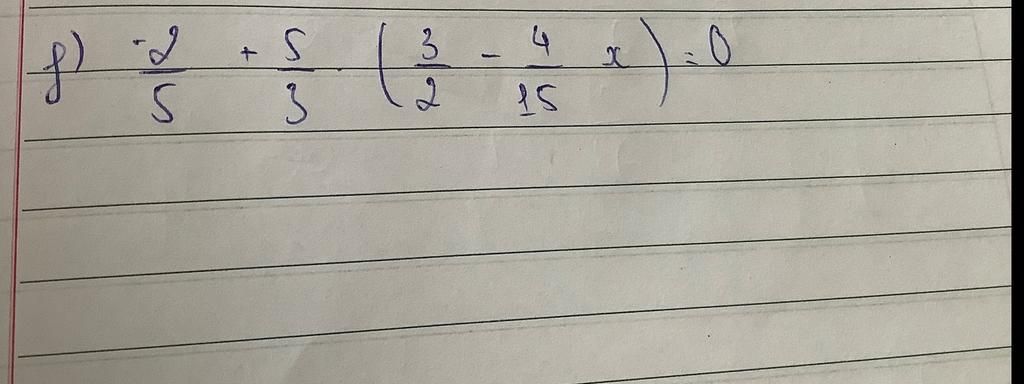 f) -2/5 + 5/3 . (3/2 - 4/15 x) = 0